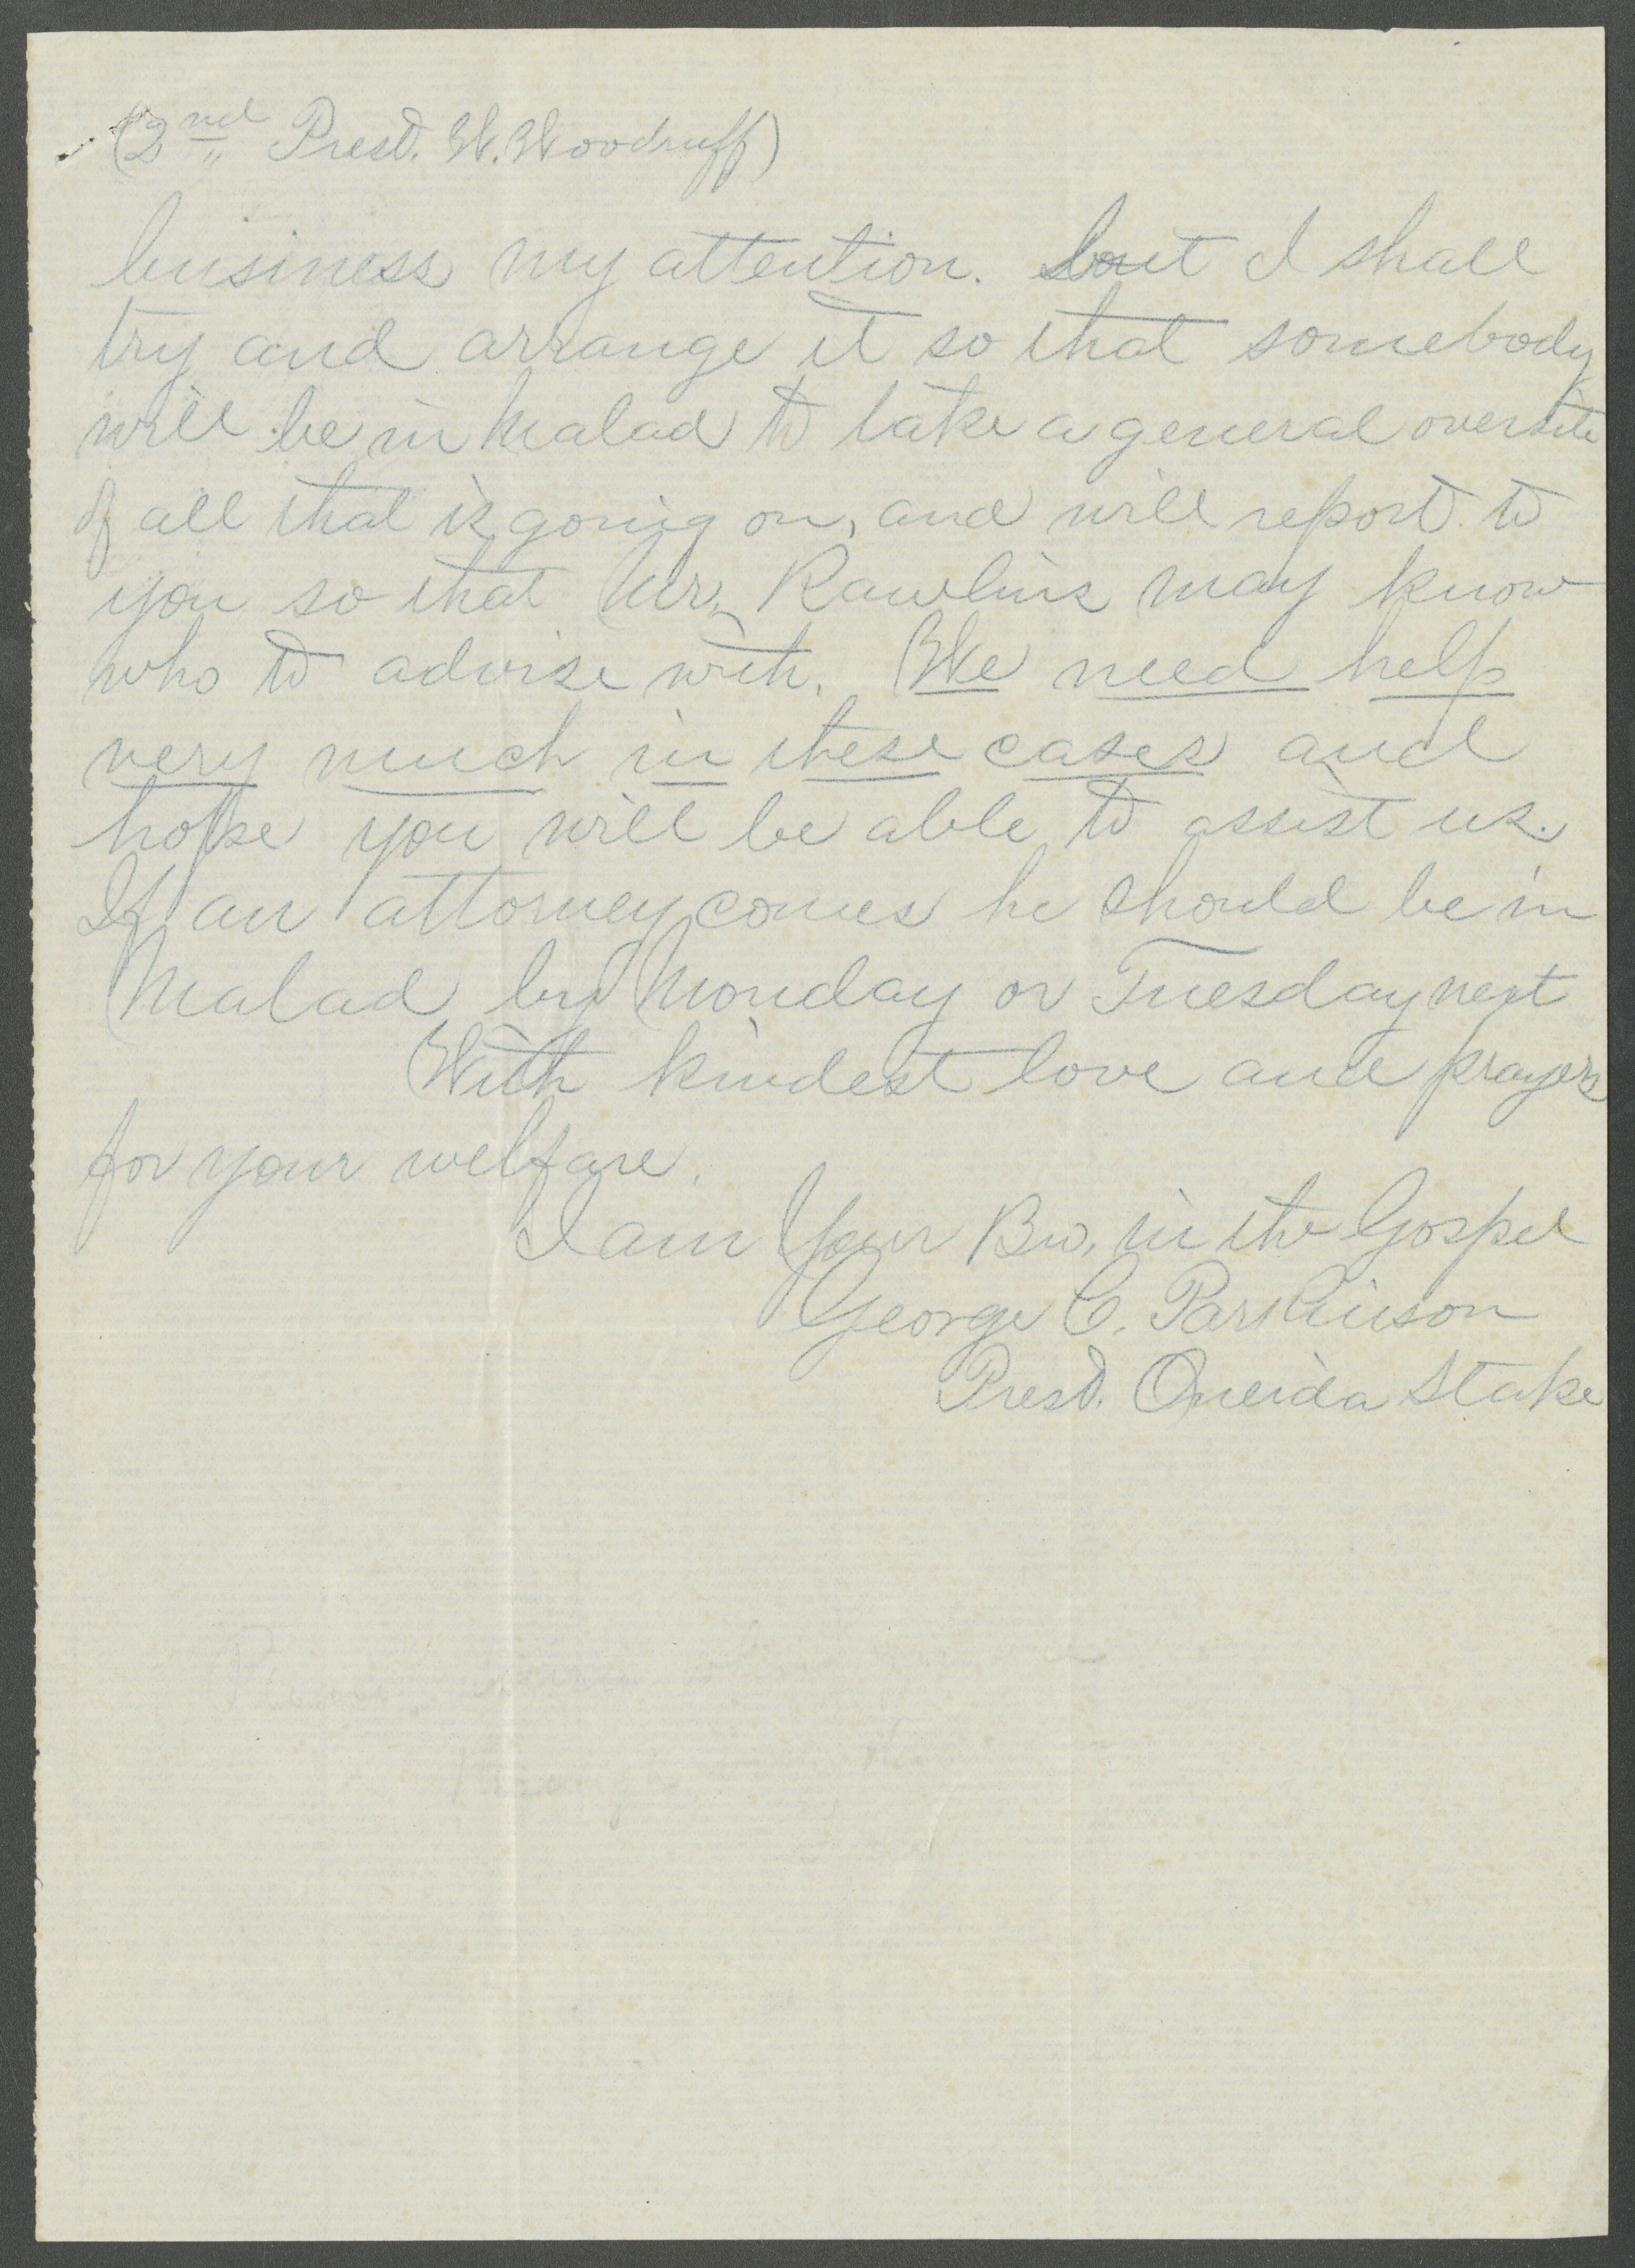 (2nd Prest. W. Woodruff)
business my attention. but I shall
try and arrange it so that somebody
will be in Malad to take a general oversite
of all that is going on, and will report to
you so that Mr. Rawlins may know
who to advise with. We need help
very much in these cases and
hope you will be able to assist us.
If an attorney comes he should be in
Malad by Monday or Tuesday next
With kindest love and prayers
for your welfare.
I am Your Bro. in the Gospel
George C. Parkinson
Prest. Oneida Stake